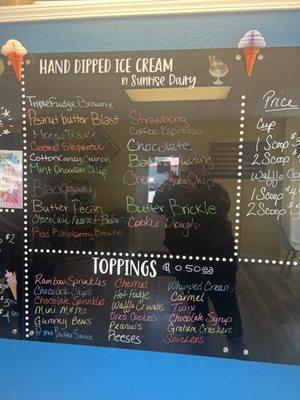 HAND DIPPED ICE CREAM
BY Sunrise Dairy
Triple Fudge Brownie
Peanut butter Blast
Moose Tracks
Caramel Shipwreck
Cotton Candy Crunch
Mint Chocolate Chip
Black Raspberry
Butter Pecan
Chocolate Peanut Butter
Red Raspberry Brownie
Strawberry
Coffee Espresso
Chocolate
Pudding
Chip
Butter Brickle
Cookie Dough
Price
Cup
1 Scoop
2 Scoop
Waffle
1 Scoop
2 Scoop
TOPPINGS $0.50ea
Rainbow Sprinkles
Chocolate Chips
Chocolate Sprinkles
Mini M&Ms
Gummy Bears
Peanut Butter Sauce
Cherries
Hot Fudge
Waffle Crumbs
Oreo Cookies
Peanuts
Reeses
Whipped Cream
Carmel
Twix
Chocolate Syrup
Graham Crackers
Snickers